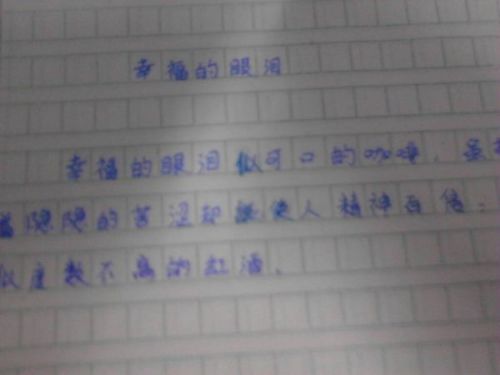 幸福的眼泪
幸福的眼泪似可口的咖啡，虽
着隐隐的苦涩却能使人精神百倍；
似度数不高的红酒，